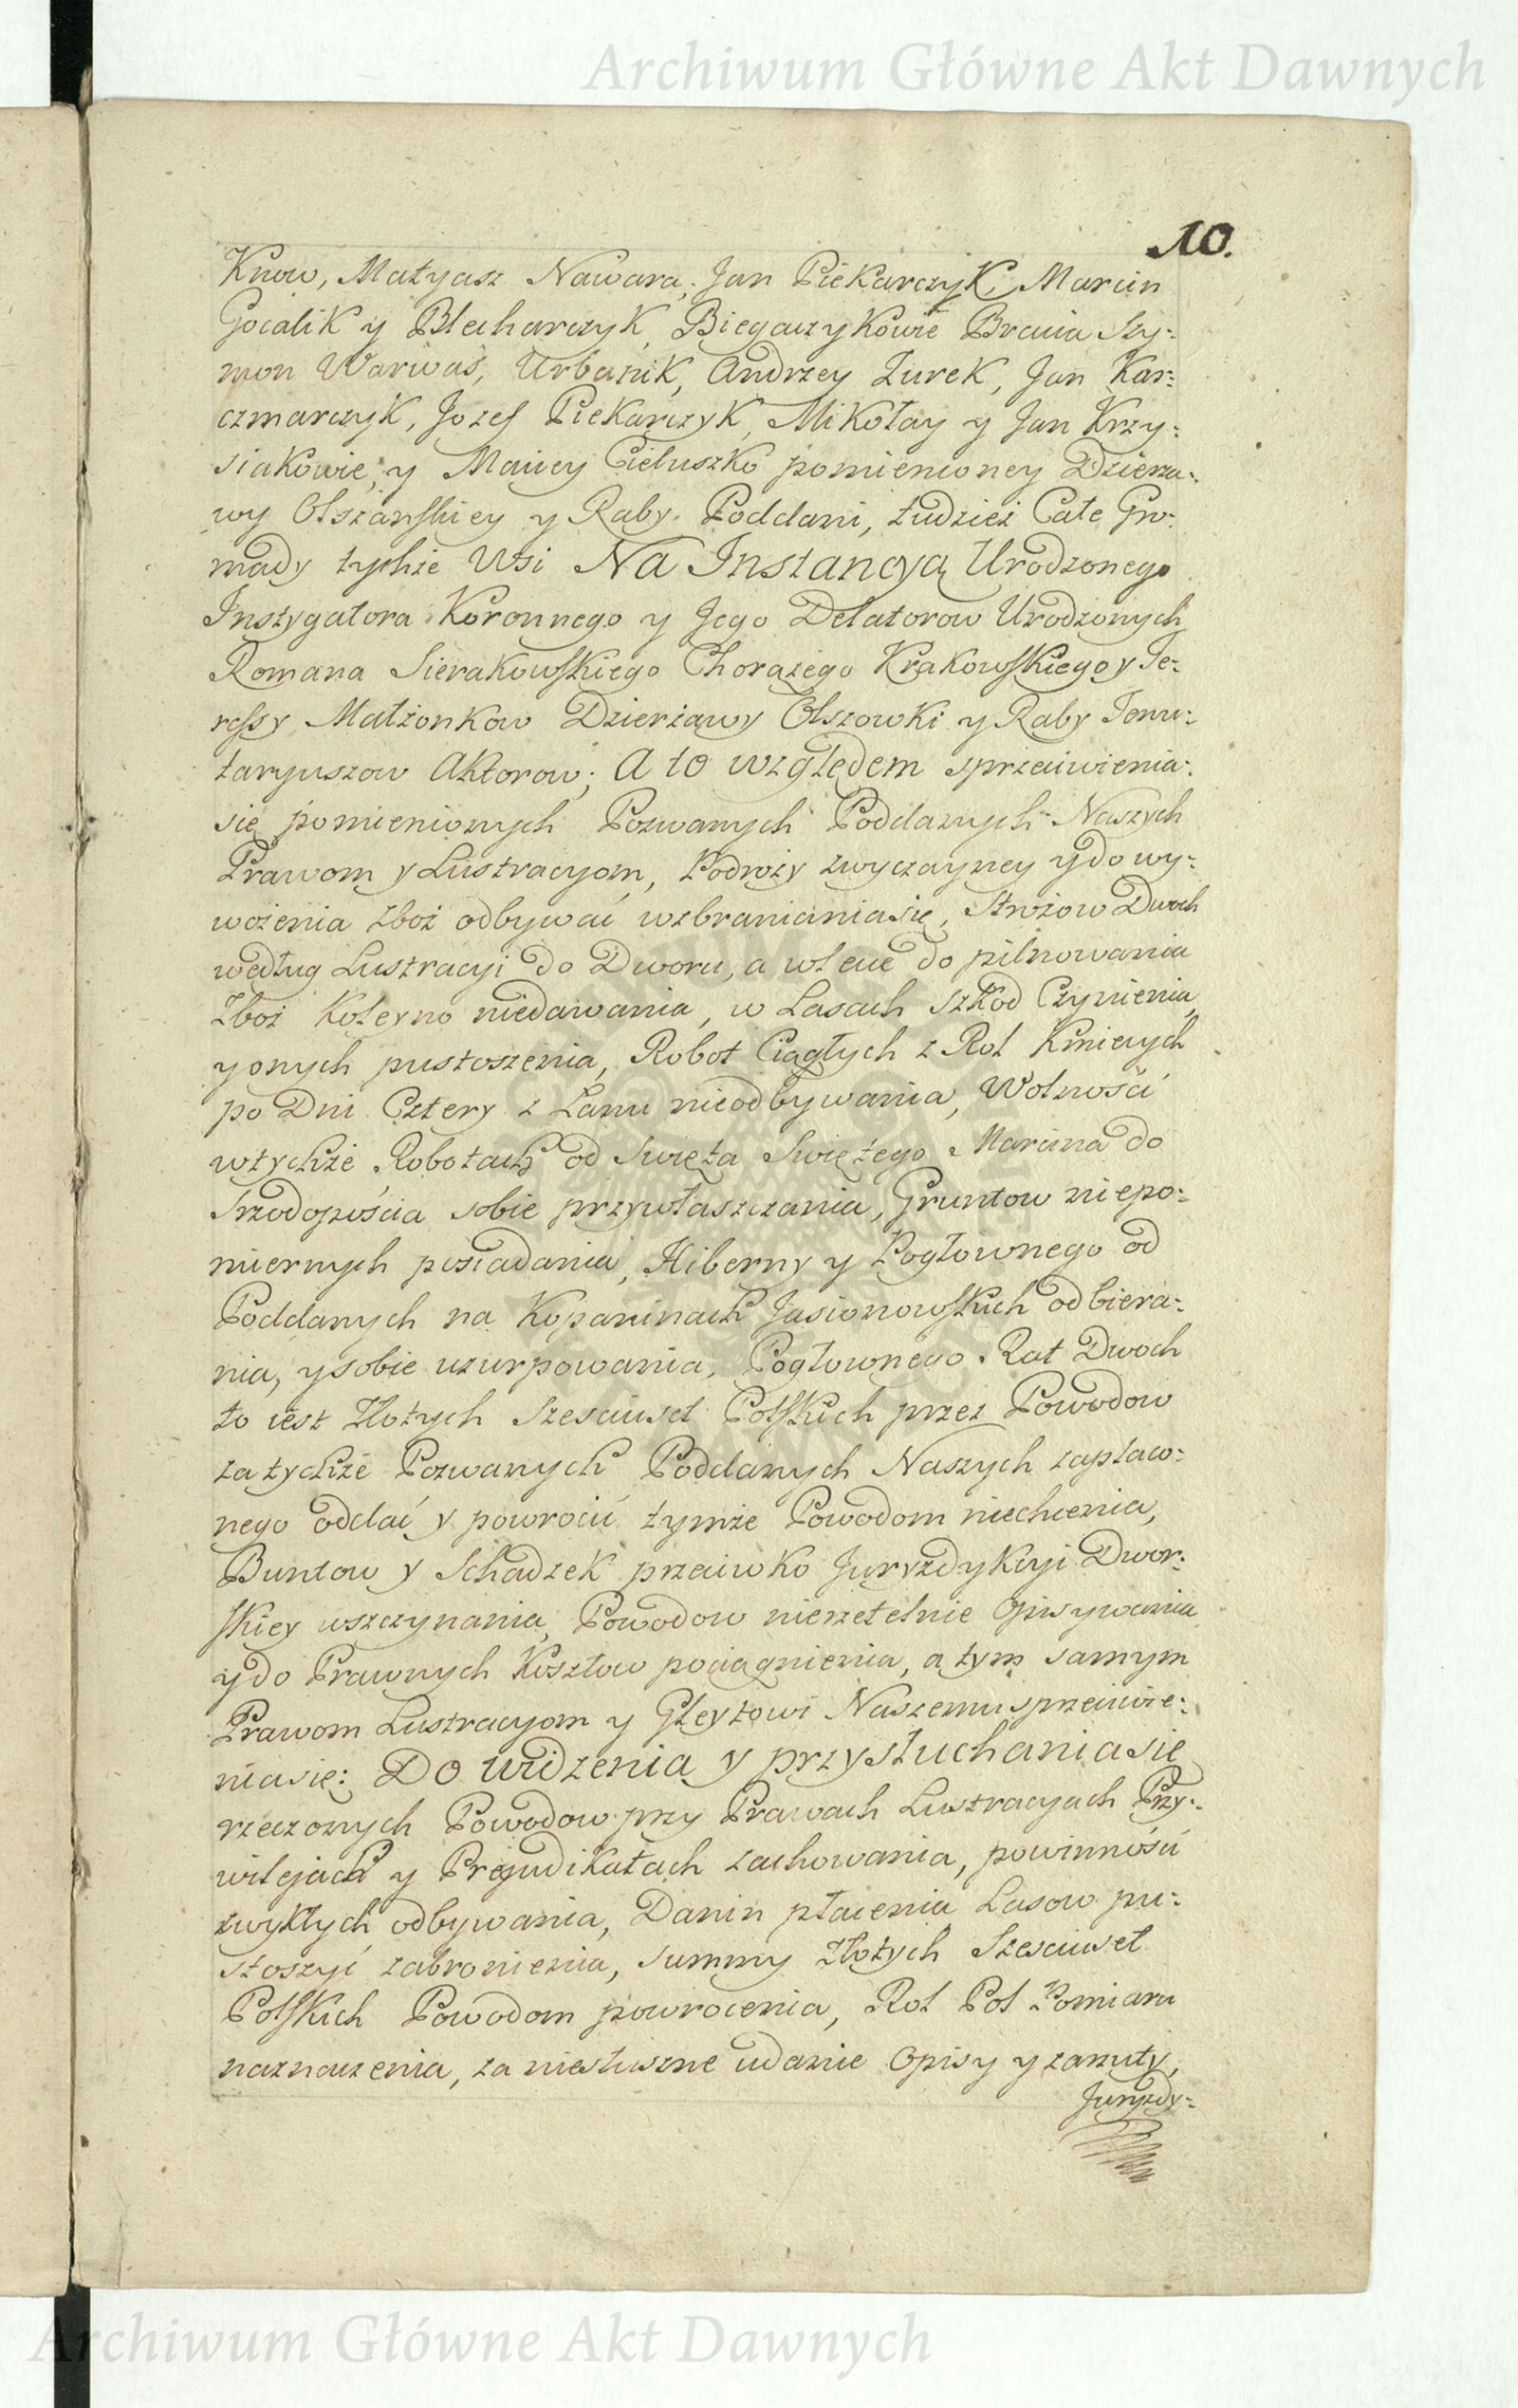 Archiwum Główne Akt Dawnych
10.
Know, Matyasz Nawara, Jan Piekarczyk, Marcin
Gocalik y Blecharczyk, Biegaczykowie Bracia Szy=
mon Warwas, Urbanik, Andrzey Żurek, Jan Kar=
czmarczyk, Jozef Piekarczyk, Mikołay y Jan Krzy=
siakowie, y Maciey Cieluszko pomienioney Dzierza=
wy Olszanskiey y Raby Poddani, tudzież Całe Gro=
mady tychże Wsi Na Instancyą Urodzonego
Instygatora Koronnego y Jego Delatorow Urodzonych
Romana Sierakowskiego Chorążego Krakowskiego y Te=
ressy Małżonkow Dzierżawy Olszowki y Raby Tenu=
taryuszow Aktorow; A to względem sprzeciwienia=
się pomienionych Pozwanych Poddanych Naszych
Prawom y Lustracyom, Podroży zwyczayney y do wy=
wożenia zboż odbywać wzbranianiasię, Strożow Dwoch
według Lustracyi do Dworu, a w lecie do pilnowania
Zboż Koleyno niedawania, w Lasach szkod Czynienia,
y onych pustoszenia, Robot Ciągłych z Rol Kmiecych
po Dni Cztery z Łanu nieodbywania, Wolności
w tychże Robotach od Swięta Swiętego Marcina do
Srzodopościa sobie przywłaszczania, Gruntow niepo=
miernych posiadania, Hiberny y Pogłownego od
Poddanych na Kopaninach Jasionowskich odbiera=
nia, y sobie uzurpowania, Pogłownego Rat Dwoch
to iest Złotych Szesciuset Polskich przez Powodow
za tychże Pozwanych Poddanych Naszych zapłaco=
nego oddać y powrocić tymże Powodom niechcenia,
Buntow y Schadzek przeciwko Juryzdykcyi Dwor=
skiey wszczynania, Powodow nierzetelnie Opisywania
y do Prawnych Kosztow pociągnienia, a tym samym
Prawom Lustracyom y Gleytowi Naszemu sprzeciwie=
niasię: Do widzenia y przysłuchania się
rzeczonych Powodow przy Prawach Lustracyach Przy=
wilejach y Prejudikatach zachowania, powinności
zwykłych odbywania, Danin płacenia Lasow pu=
stoszyć zabronienia, summy Złotych Szesciuset
Polskich Powodom powrocenia, Rol Pol Pomiaru
naznaczenia, za niesłuszne udanie Opisy y zarzuty,
Juryzdy=
Archiwum Główne Akt Dawnych